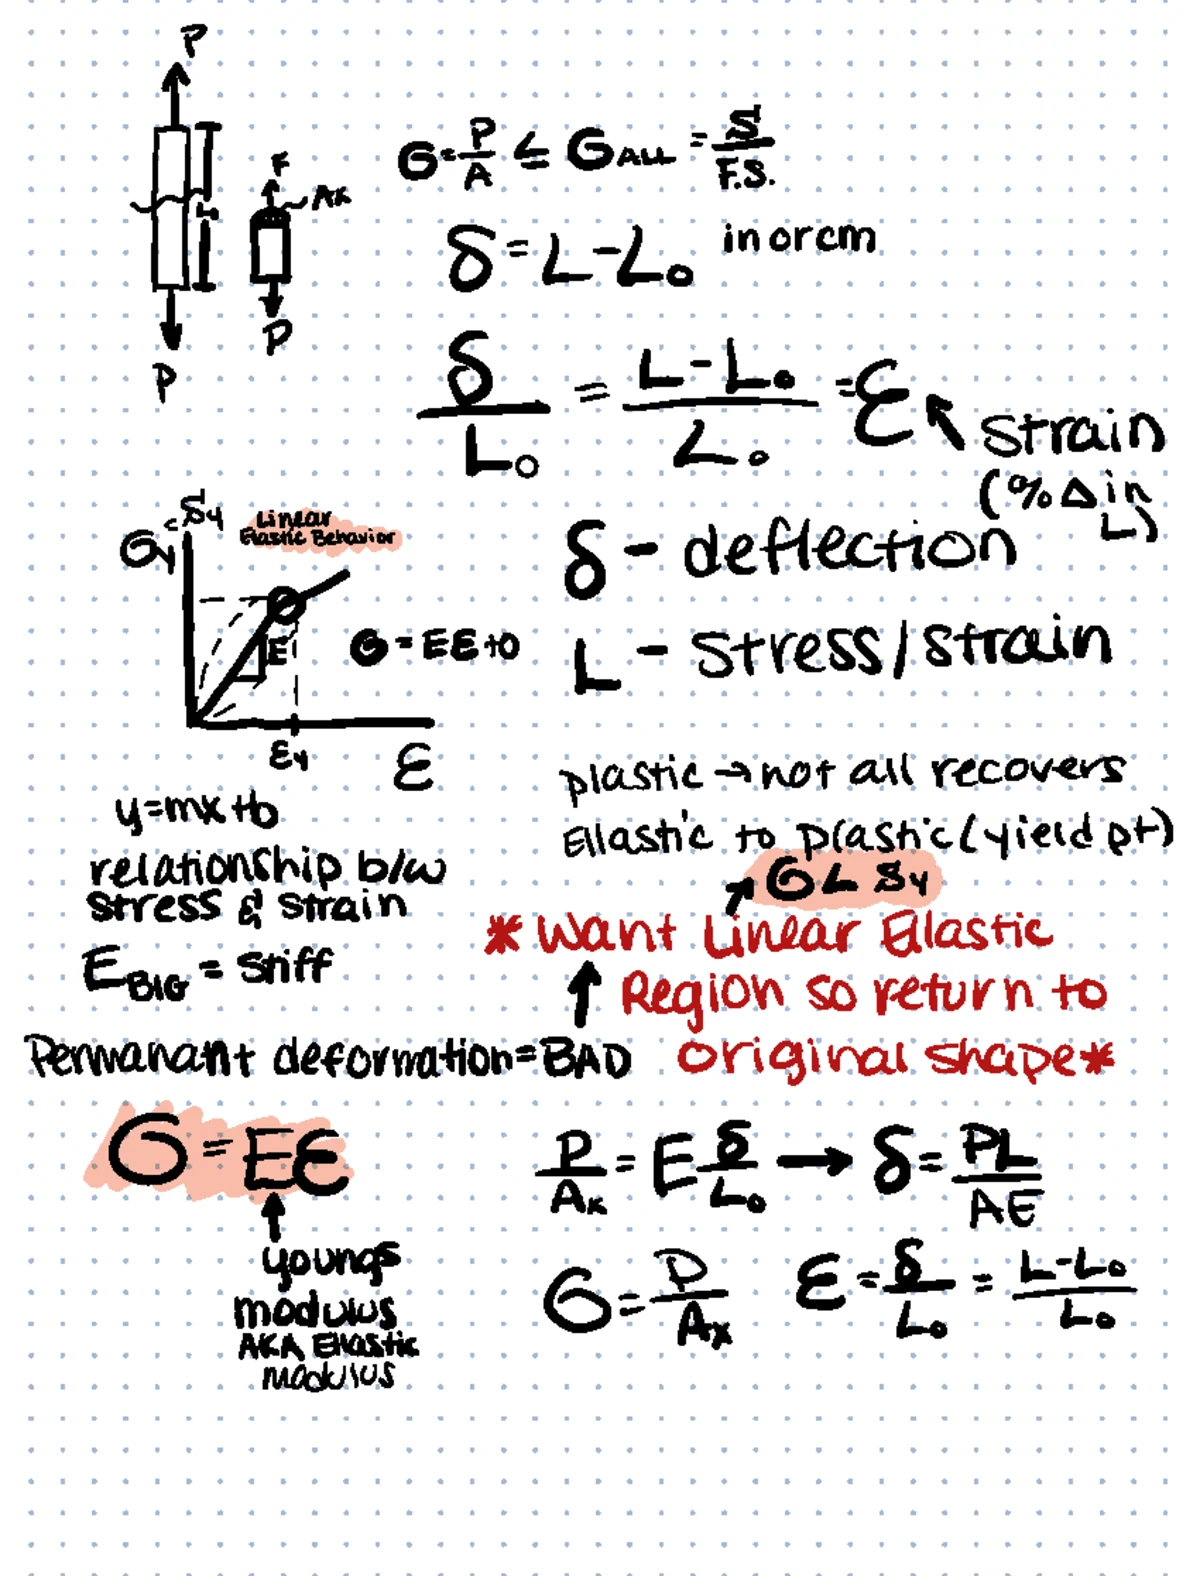 P
F
Ax
L
P
P
σ = P/A ≤ σALL = S/F.S.
δ = L - L₀ in or cm
δ/L₀ = (L - L₀)/L₀ = ε Strain
(% Δ in L)
σy = Sy
Linear
Elastic Behavior
E
σ = Eε + 0
εy
ε
δ - deflection
L - Stress/strain
y=mx+b
relationship b/w
stress & strain
E BIG = Stiff
plastic → not all recovers
Ellastic to plastic (yield pt)
σ < Sy
* Want Linear Ellastic
Region so return to
original shape *
Permanant deformation = BAD
σ = Eε
youngs
modulus
AKA Ellastic
modulus
P/Ax = E δ/L₀ → δ = PL/AE
σ = P/Ax ε = δ/L₀ = (L-L₀)/L₀